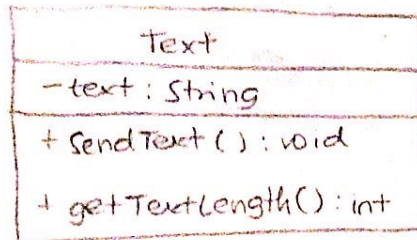 Text
- text : String
+ SendText ( ) : void
+ getTextLength() : int